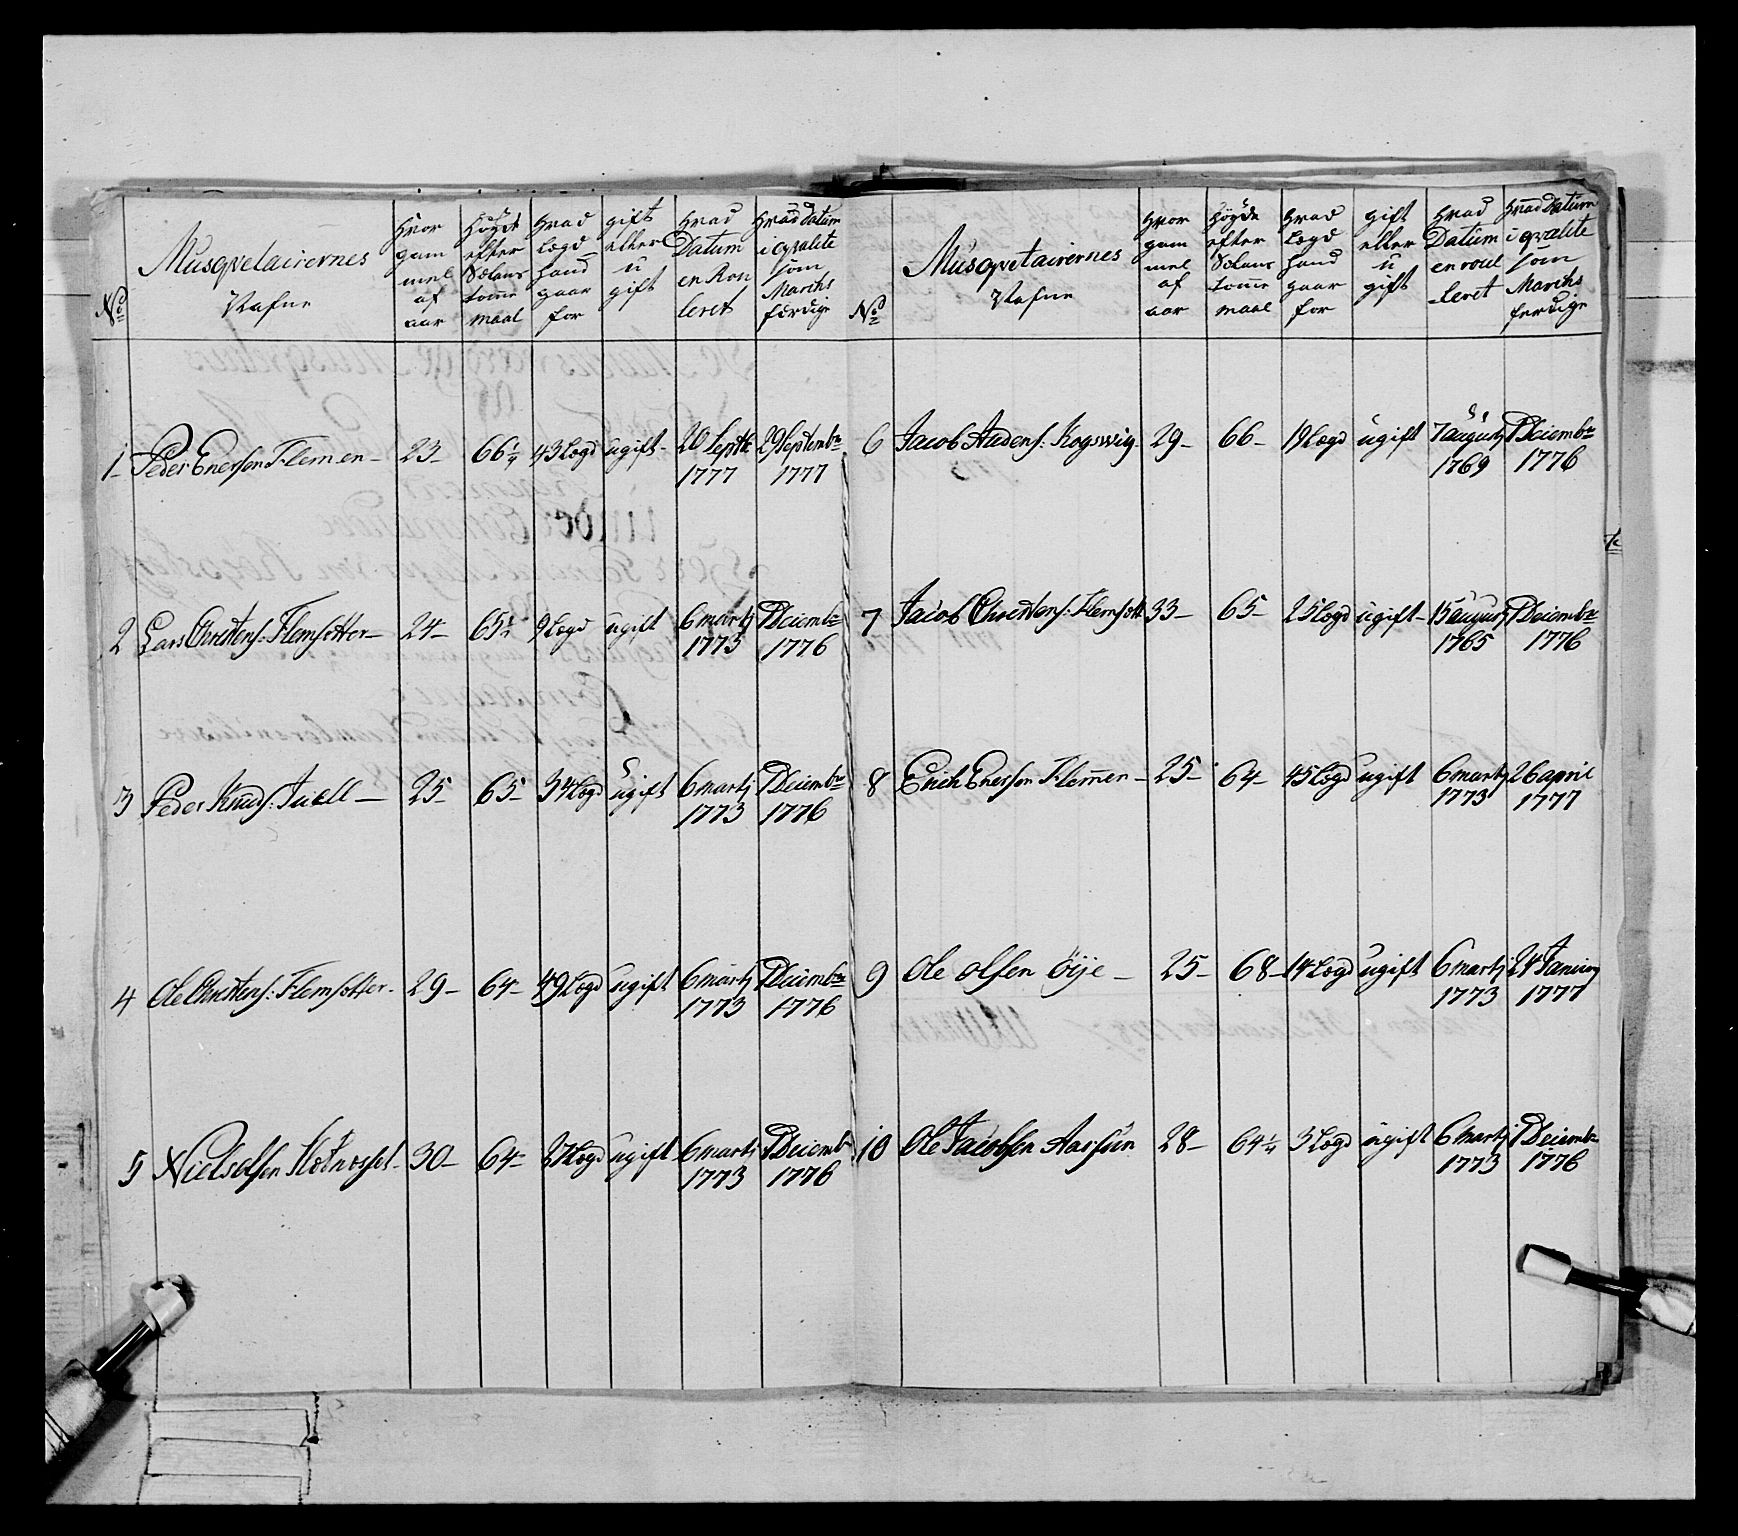 No Musqvetairernes Nafne | Hvor gam mel af aar | Højde efter Sælans tomme maal | Hvad Lægd hand gaar for | gift eller u gift | Hvad Datum en Rou leret | Hvad Datum i qvalite som Marchs færdige
1 Peder Enersson Flemen 23 66¼ 43 Lægd ugift 20 Septb 1777 29 Septembr 1777
2 Lars Christens: Flemsetter 24 65½ 9 Lægd ugift 6 martj 1773 7 Deiembr 1776
3 Peder Knuds: Juell 25 65 34 Lægd ugift 6 martj 1773 7 Deiembr 1776
4 Ole Christens: Flemsetter 29 64 49 Lægd ugift 6 martj 1773 7 Deiembr 1776
5 Niels olsen 30 64 27 Lægd ugift 6 martj 1773 7 Deiemb 1776
No Musqvetairernes Nafne | Hvor gam mel af aar | Højde efter Sælans tomme maal | Hvad Lægd hand gaar for | gift eller u gift | Hvad Datum en roul leret | Hvad Datum i qvalite som Marchs ferdige
6 Jacob Andens: Kogswig 29 66 19 Lægd ugift 7 augustj 1769 7 Deiembr 1776
7 Jacob Christens: Flemsett 33 65 25 Lægd ugift 15 augustj 1765 7 Deiembr 1776
8 Erich Enersson Flemen 25 64 45 Lægd ugift 6 martj 1773 26 april 1777
9 Ole olsen Öije 25 68 14 Lægd ugift 6 martj 1773 24 Januarij 1777
10 Ole Jacobsen Aarsün 28 64¼ 3 Lægd ugift 6 Martj 1773 7 Deiembr 1776